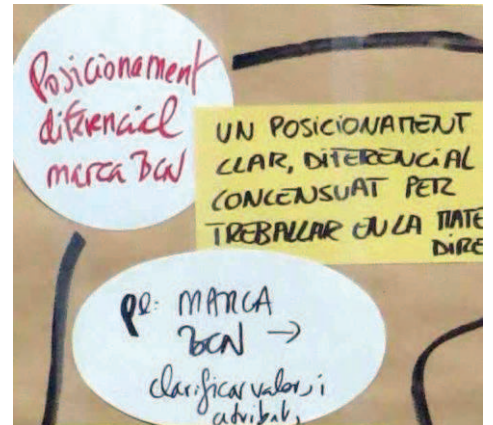 Posicionament
diferencial
marca BCN
UN POSICIONAMENT
CLAR, DIFERENCIAL
CONCENSUAT PER
TREBALLAR EN LA MATE
DIRE
Pe: MARCA
BCN →
clarificar valors i
atributs